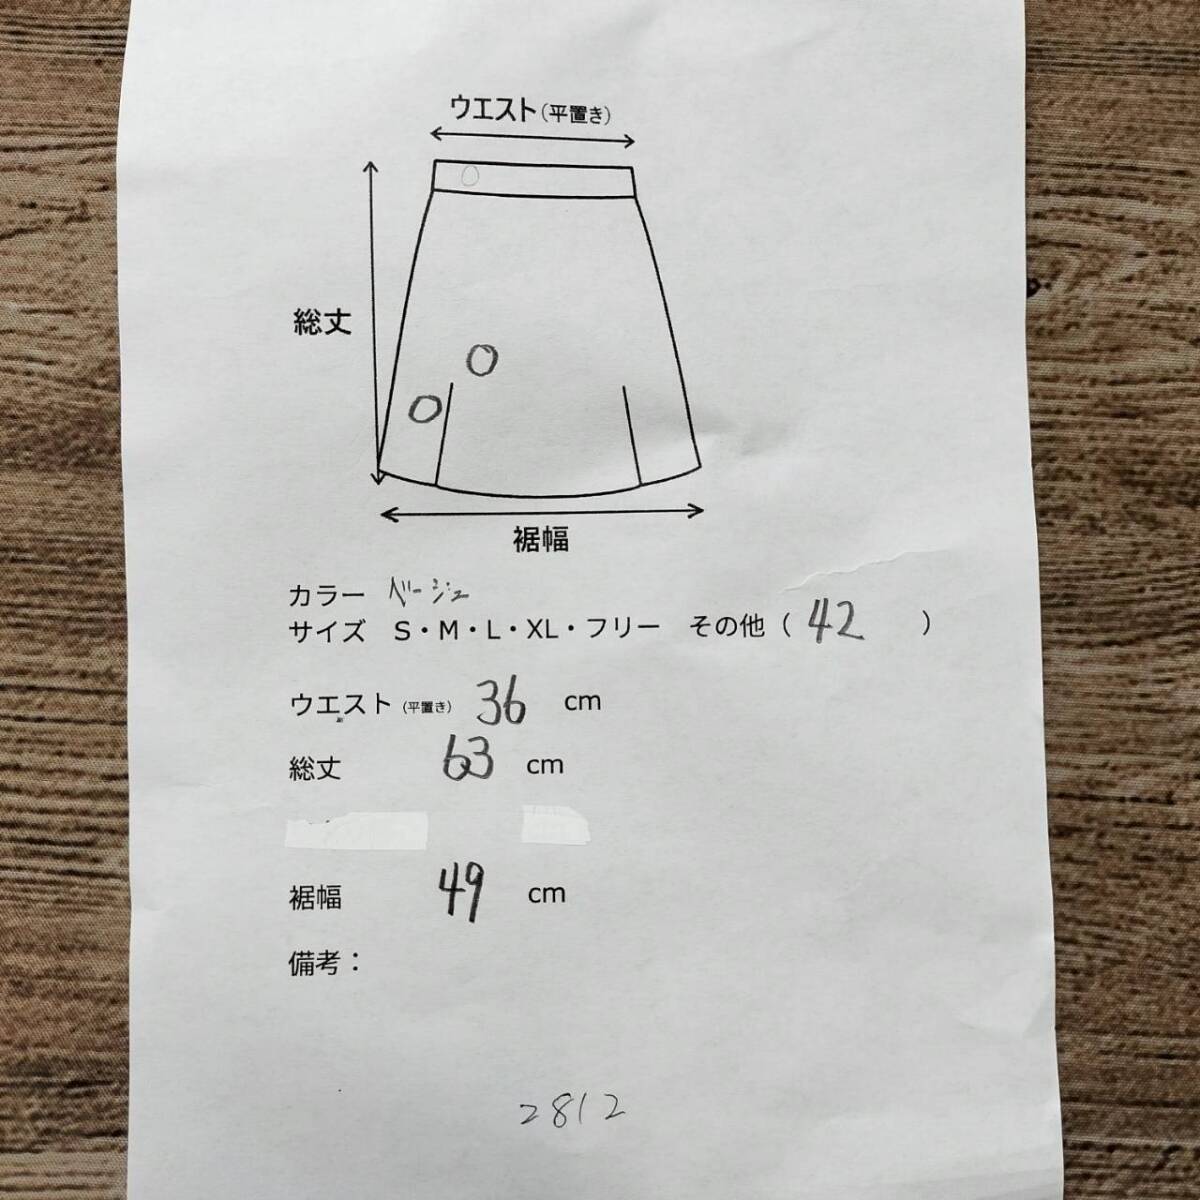 ウエスト(平置き)
総丈
裾幅
カラー ベージュ
サイズ S・M・L・XL・フリー その他( 42 )
ウエスト(平置き) 36 cm
総丈 63 cm
裾幅 49 cm
備考：
2812